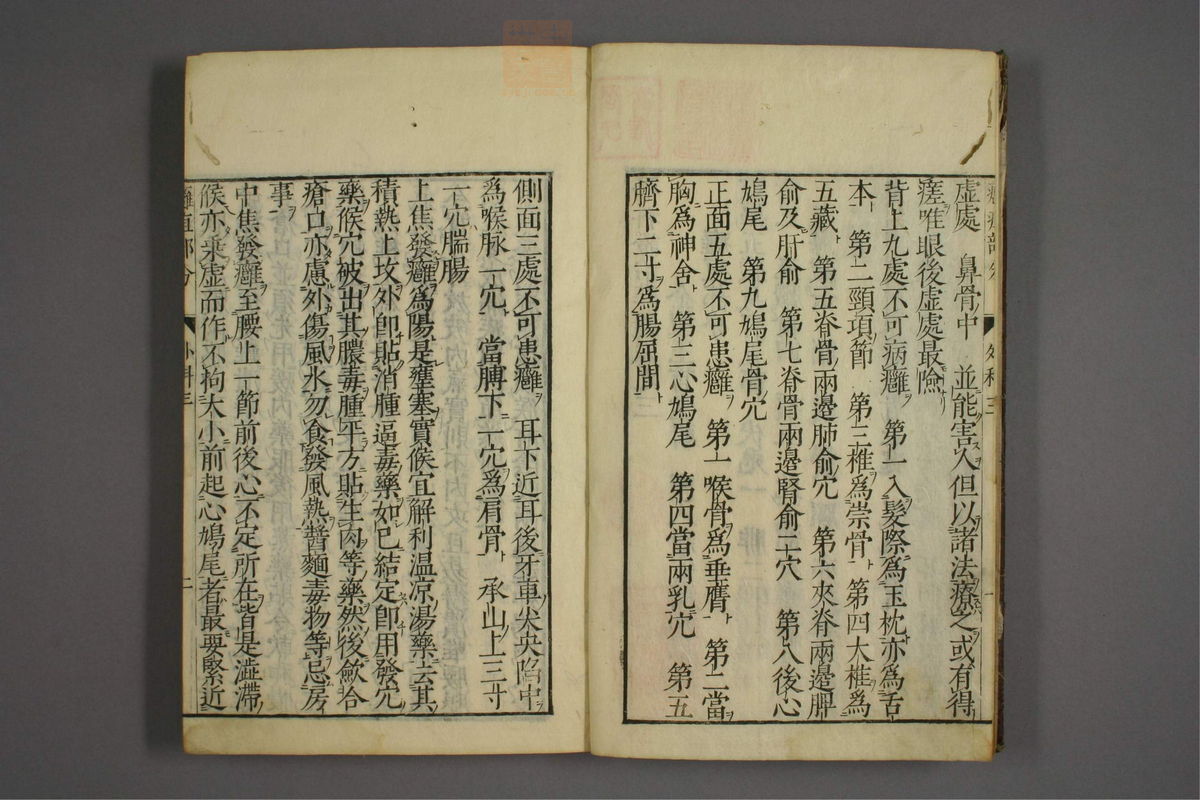 虛處　鼻骨中　並能害人但以諸法療之或有得
瘥唯眼後虛處最險
背上九處不可病癰　第一入髮際爲玉枕亦爲舌
本　第二頸項節　第三椎爲崇骨　第四大椎爲
五藏　第五脊骨兩邊肺俞穴　第六夾脊兩邊脾
俞及肝俞　第七脊骨兩邊腎俞二穴　第八後心
鳩尾　第九鳩尾骨穴
正面五處不可患癰　第一喉骨爲垂膺　第二當
胸爲神舍　第三心鳩尾　第四當兩乳穴　第五
臍下二寸爲腸屈間
側面三處不可患癰　耳下近耳後牙車尖央陷中
爲喉脉一穴　當膊下一穴爲肩骨　承山上三寸
一穴腨腸
上焦發癰爲陽是壅塞實候宜解利溫凉湯藥去其
積熱上攻外卽貼消腫逼毒藥如已結定卽用發穴
藥候穴破出其膿毒腫平方貼生肉等藥然後斂合
瘡口亦慮外傷風水勿食發風熱醬麵毒物等忌房
事
中焦發癰至腰上一節前後心不定所在皆是澁滯
候亦乘虛而作不拘大小前起心鳩尾者最要緊近
外科三
二
外科三
一